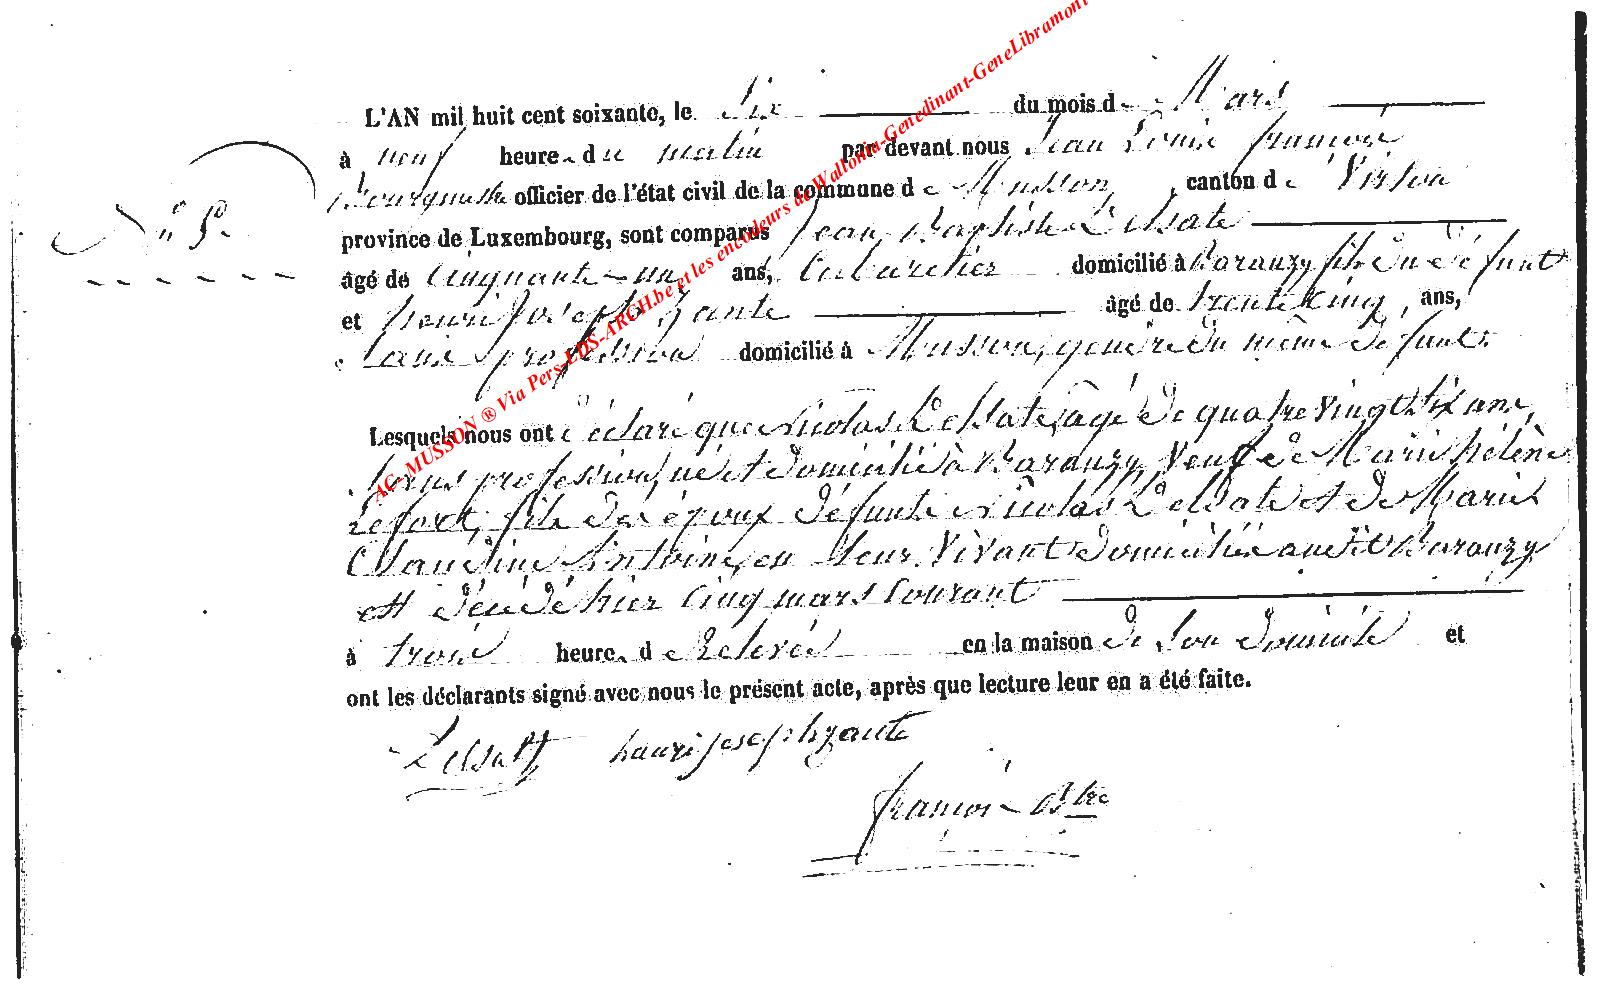 L'AN mil huit cent soixante, le Six du mois de Mars
à neuf heures du matin par devant nous Jean Louis françois
Bourguestre officier de l'état civil de la commune de Musson, canton de Virton
N° 5.
province de Luxembourg, sont comparus Jean Baptiste Delsate
âgé de Cinquante-un ans, Cabaretier domicilié à Baranzy fils du défunt
et henri Joseph Zante âgé de trente Cinq ans,
sans profession domicilié à Musson, gendre du même défunt.
Lesquels nous ont déclaré que Nicolas Delsate, âgé de quatre vingt six ans,
sans profession, né et domicilié à Baranzy, Veuf de Marie hélène
Lefort, fils des époux défunts Nicolas Delsate et de Marie
Claudine Antoine, en leur Vivant domiciliés audit Baranzy
est décédé hier Cinq mars Courant
à trois heures de Relevée en la maison de Son domicile et
ont les déclarants signé avec nous le présent acte, après que lecture leur en a été faite.
Delsatt henri joseph zante
françois Btre
AC-MUSSON ® Via Pers-EDS-ARCH.be et les encodeurs de Wallonia-Genedinant-GeneLibramont